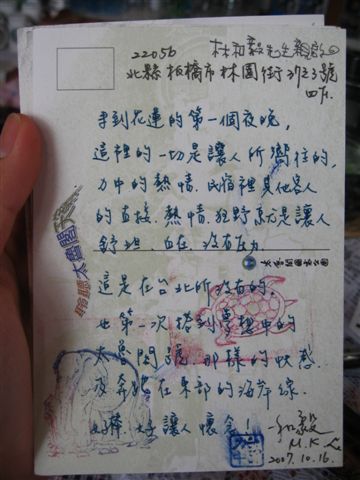 22056
林和毅先生親啟
北縣板橋市林園街37之3號
四F.
來到花蓮的第一個夜晚,
這裡的一切是讓人所嚮往的,
的熱情,民宿裡其他客人
的直接.熱情.狂野就是讓人
舒坦.自在.沒有壓力.
聆聽太魯閣
太魯閣國家公園
這是在台北所沒有的.
也第一次搭到夢想中的
太魯閣號.那樣的快感.
及奔馳在東部的海岸線.
好棒.好讓人懷念!
和毅
M.K.
2007.10.16.